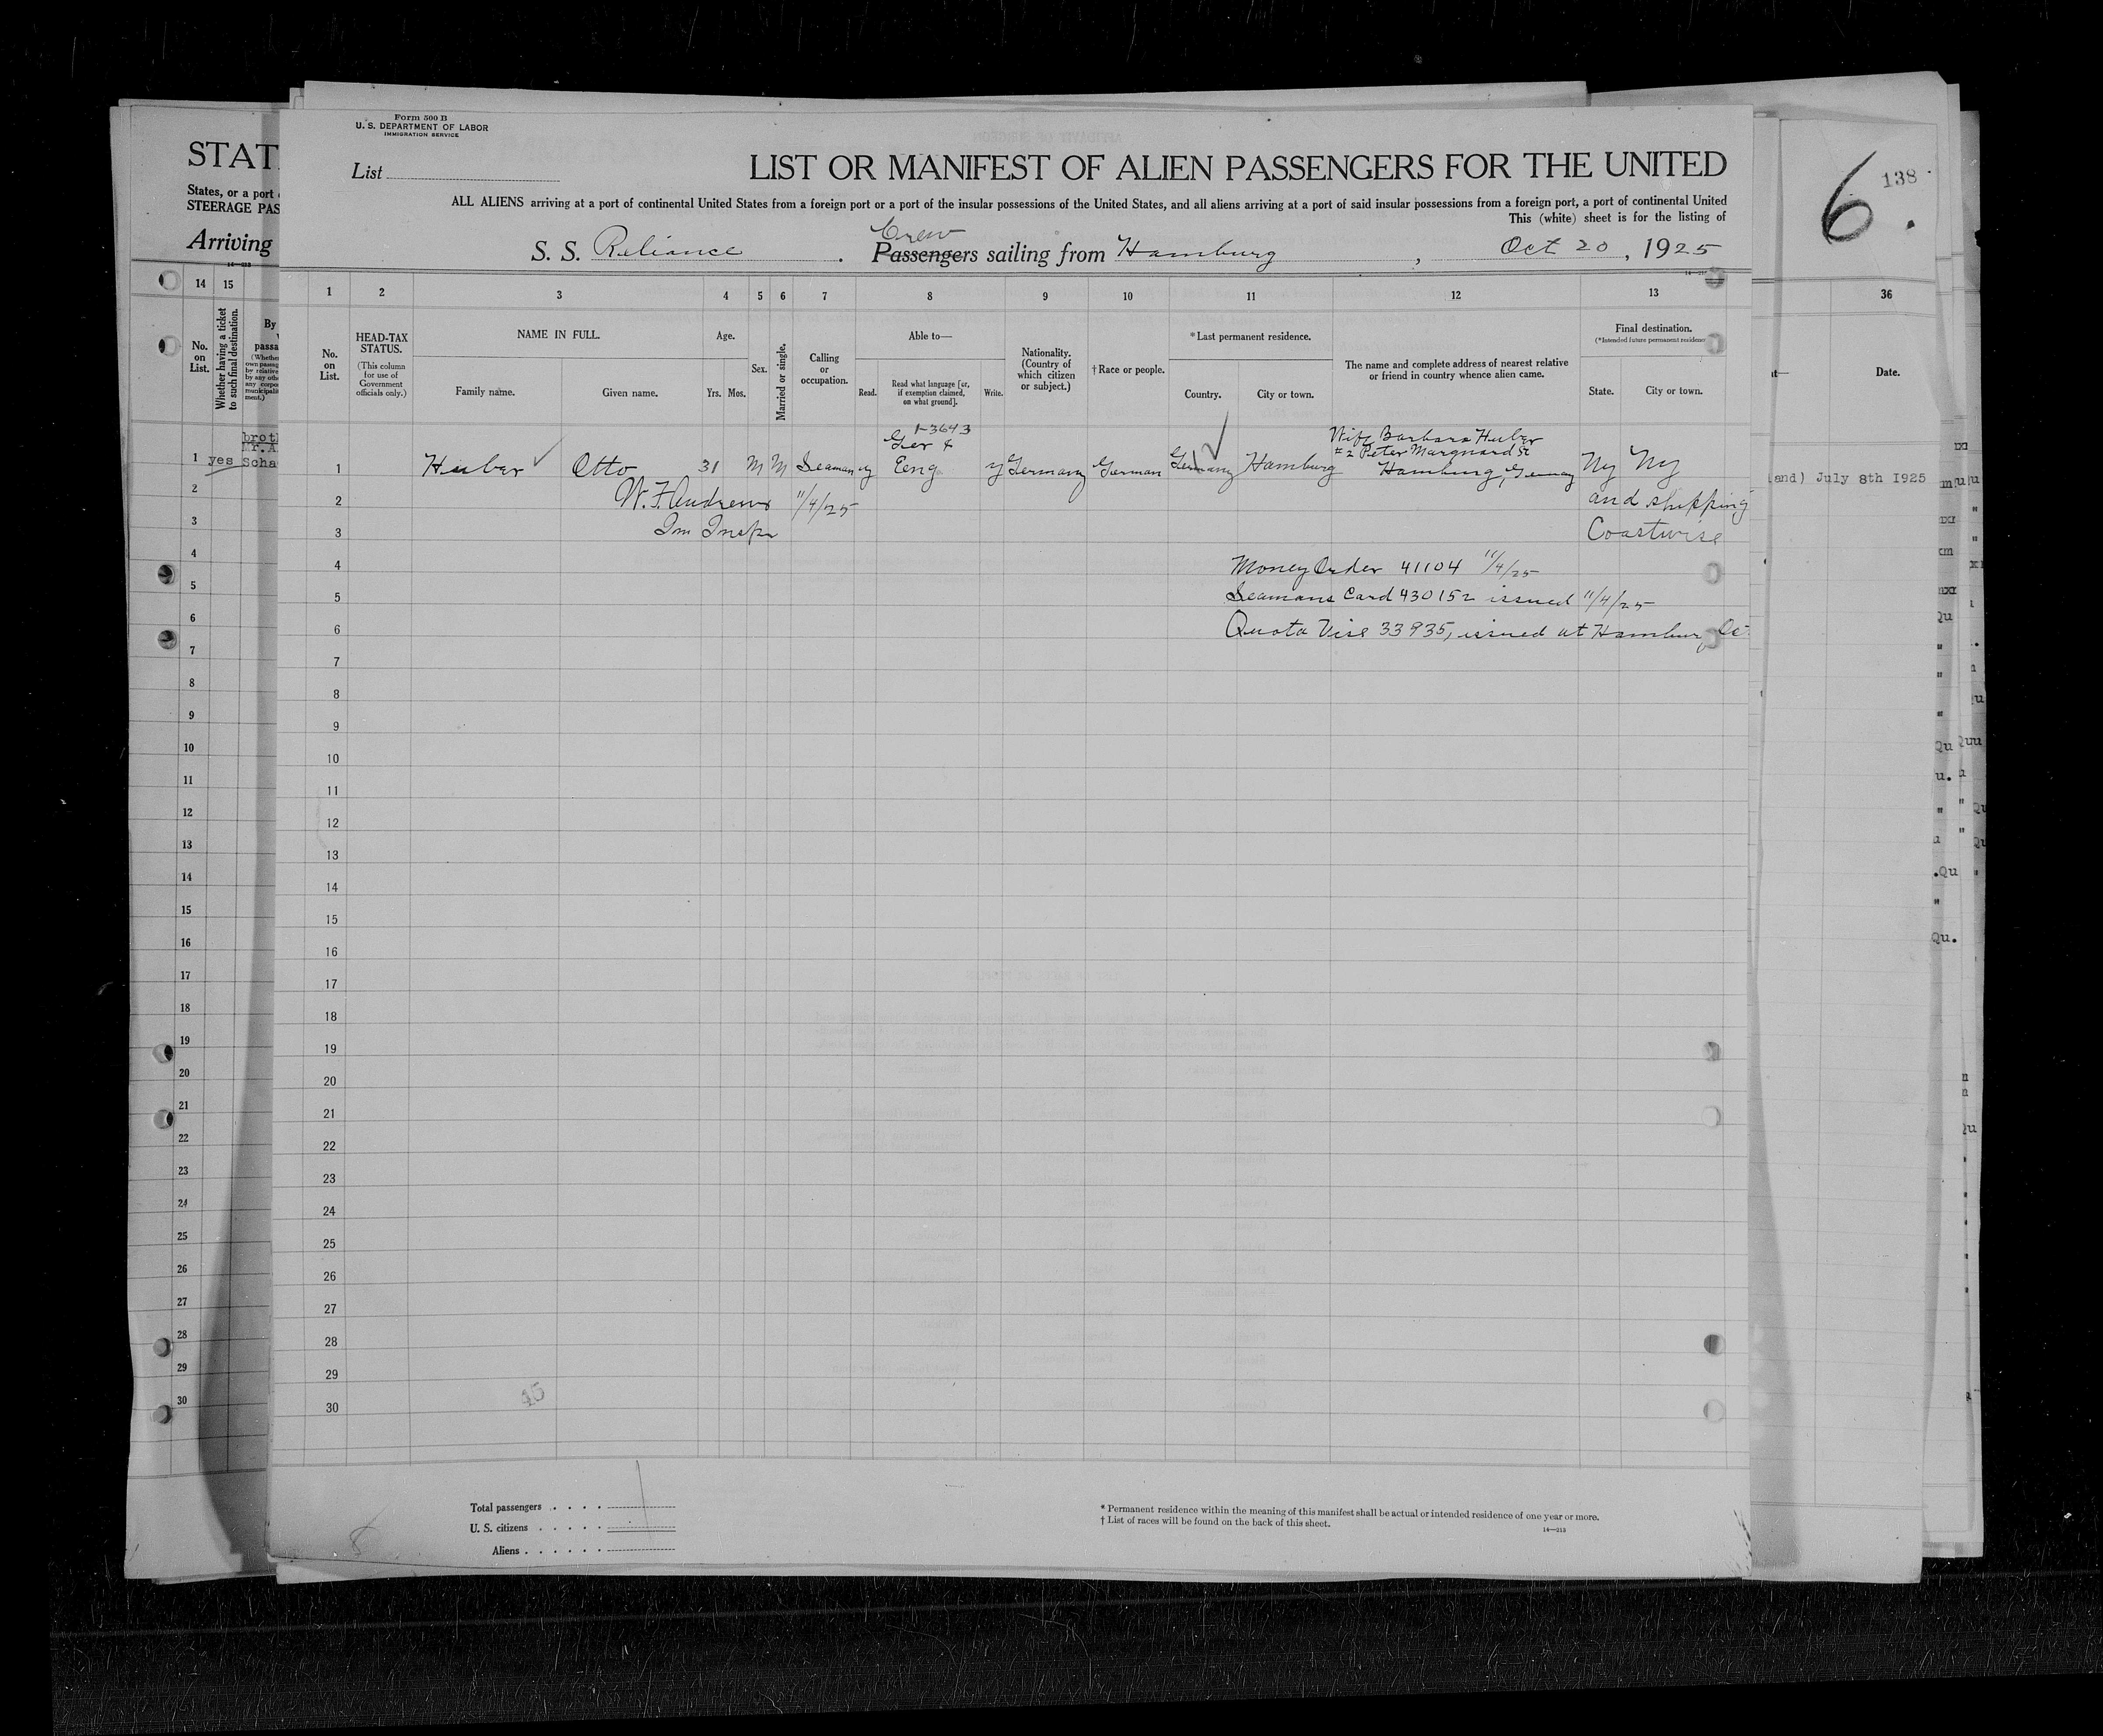 Form 500 B
U. S. DEPARTMENT OF LABOR
IMMIGRATION SERVICE
List
LIST OR MANIFEST OF ALIEN PASSENGERS FOR THE UNITED
ALL ALIENS arriving at a port of continental United States from a foreign port or a port of the insular possessions of the United States, and all aliens arriving at a port of said insular possessions from a foreign port, a port of continental United
This (white) sheet is for the listing of
Crew
S. S. Reliance . Passengers sailing from Hamburg , Oct 20 , 1925
STAT
States, or a port
STEERAGE PAS
Arriving
6. 138
14 15
1 2 3 4 5 6 7 8 9 10 11 12 13
36
No. on List.
Whether having a ticket to such final destination.
By
passa
No. on List.
HEAD-TAX STATUS.
(This column for use of Government officials only.)
NAME IN FULL.
Family name.
Given name.
Age.
Yrs. Mos.
Sex.
Married or single.
Calling or occupation.
Able to—
Read.
Read what language [or, if exemption claimed, on what ground].
Write.
Nationality. (Country of which citizen or subject.)
†Race or people.
*Last permanent residence.
Country.
City or town.
The name and complete address of nearest relative or friend in country whence alien came.
Final destination.
(*Intended future permanent residence
State.
City or town.
Date.
1-3643
Ger &
Wife Barbara Huber
#2 Peter Marquard St
1 Huber Otto 31 M M Seaman y Eng y Germany German Germany Hamburg Hamburg, Germany Ny Ny
2 W. F. Andrews 11/4/25 and shipping
3 Im Inspr Coastwise
4 Money Order 41104 11/4/25
5 Seamans Card 430152 issued 11/4/25
6 Quota Vise 33935, issued at Hamburg Oc
7
8
9
10
11
12
13
14
15
16
17
18
19
20
21
22
23
24
25
26
27
28
29
30
45
1 yes
brot
Mr.A
Scha
2
3
4
5
6
7
8
9
10
11
12
13
14
15
16
17
18
19
20
21
22
23
24
25
26
27
28
29
30
and) July 8th 1925
Total passengers . . . . 1
U. S. citizens . . . . .
Aliens . . . . . .
* Permanent residence within the meaning of this manifest shall be actual or intended residence of one year or more.
† List of races will be found on the back of this sheet.
14—213